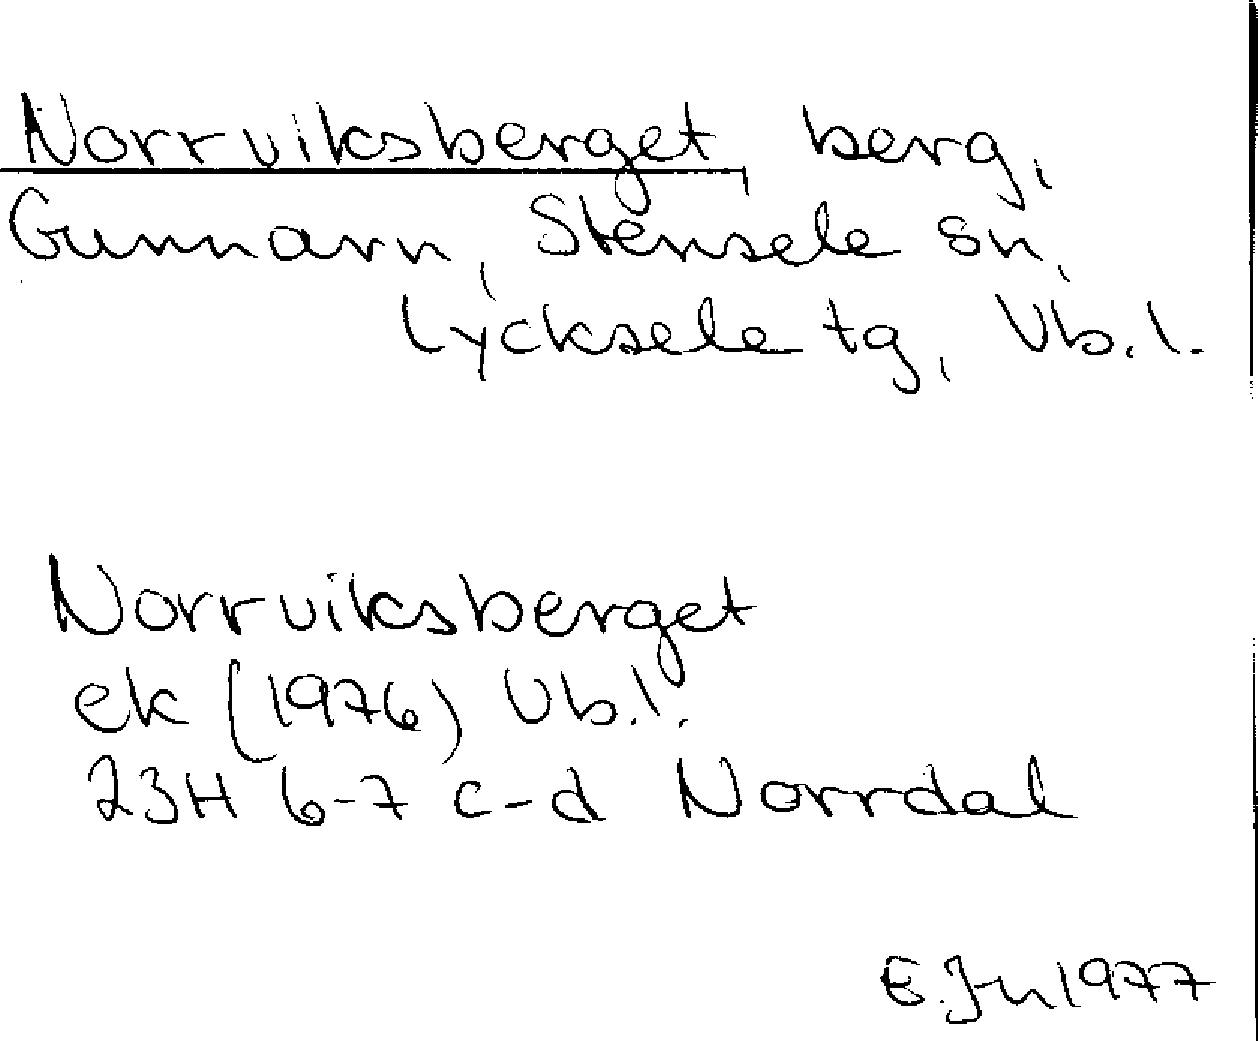 Norrviksberget, berg,
Gunnarn, Stensele sn,
Lycksele tg, Vb.l.
Norrviksberget
ek (1976) Vb.l.
23H 6-7 c-d Norrdal
E.J-n 1977